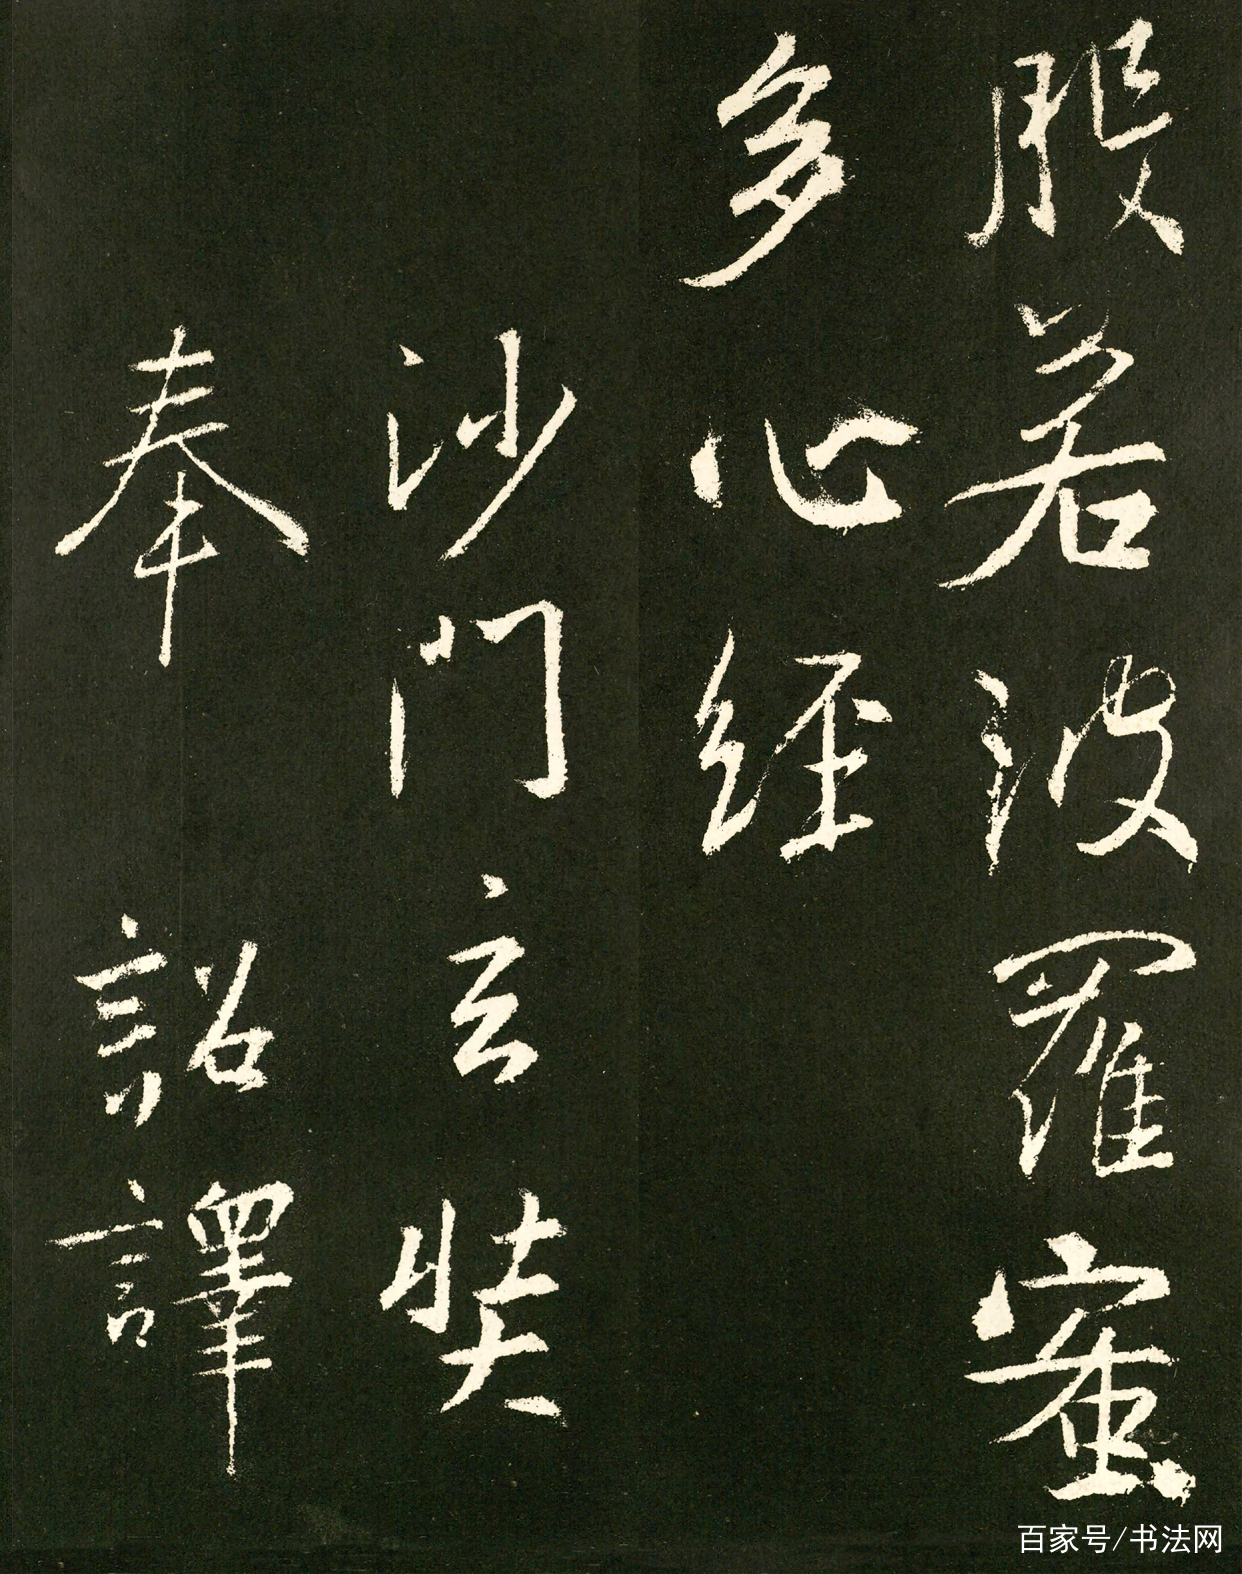 般若波羅蜜
多心經
沙門玄奘
奉詔譯
百家号/书法网